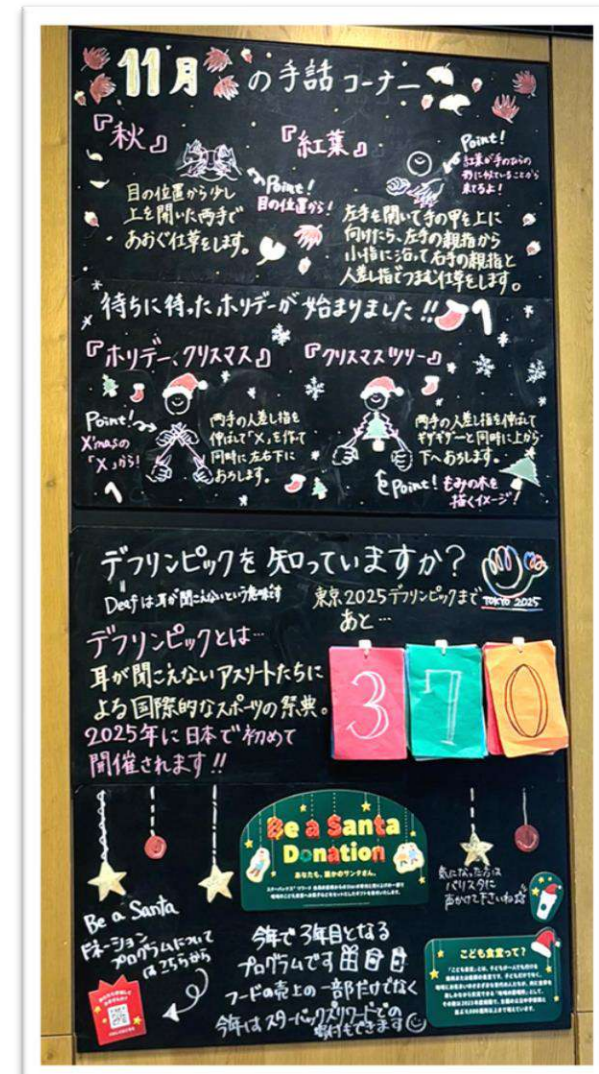 11月の手話コーナー
『秋』
Point!
目の位置から!
目の位置から少し
上を開いた両手で
あおぐ仕草をします。
『紅葉』
Point!
紅葉が手のひらの
形に似ていることから
来てるよ!
左手を開いて手の甲を上に
向けたら、左手の親指から
小指に沿って右手の親指と
人差し指でつまむ仕草をします。
待ちに待ったホリデーが始まりました!!
『ホリデー、クリスマス』
Point!
X'masの
「X」から!
両手の人差し指を
伸ばして「X」を作って
同時に左右下に
おろします。
『クリスマスツリー』
両手の人差し指を伸ばして
ギザギザーと同時に上から
下へおろします。
Point! もみの木を
描くイメージ!
デフリンピックを知っていますか?
Deafは耳が聞こえないという意味です
東京2025デフリンピックまで
あと…
TOKYO 2025
デフリンピックとは…
耳が聞こえないアスリートたちに
よる国際的なスポーツの祭典。
2025年に日本で初めて
開催されます!!
370
Be a Santa
Donation
あなたも、誰かのサンタさん。
気になった方は
バリスタに
声かけて下さいね
Be a Santa
ドネーション
プログラムについて
はこちらから
今年で3年目となる
プログラムです
フードの売上の一部だけでなく
今年はスターバックスリワードでの
寄付もできます
こども食堂って?